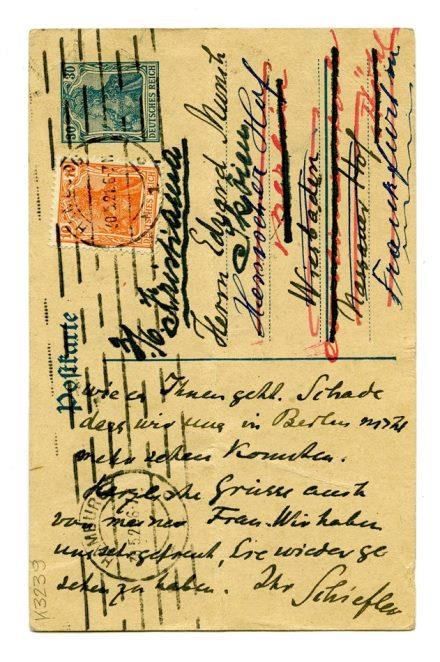 30 30
DEUTSCHES REICH
DEUTSCHES REICH
Postkarte
HAMBURG
Herrn Edvard Munch
Skøien
Kristiania
Hannover Hof
Berlin
Wiesbaden
Nassauer Hof
Frankfurt
wie es Ihnen geht. Schade
dass wir uns in Berlin nicht
mehr sehen konnten.
Herzliche Grüsse auch
von meiner Frau. Wir haben
uns sehr gefreut, Sie wieder ge
sehen zu haben. Ihr
Schiefler
K3239